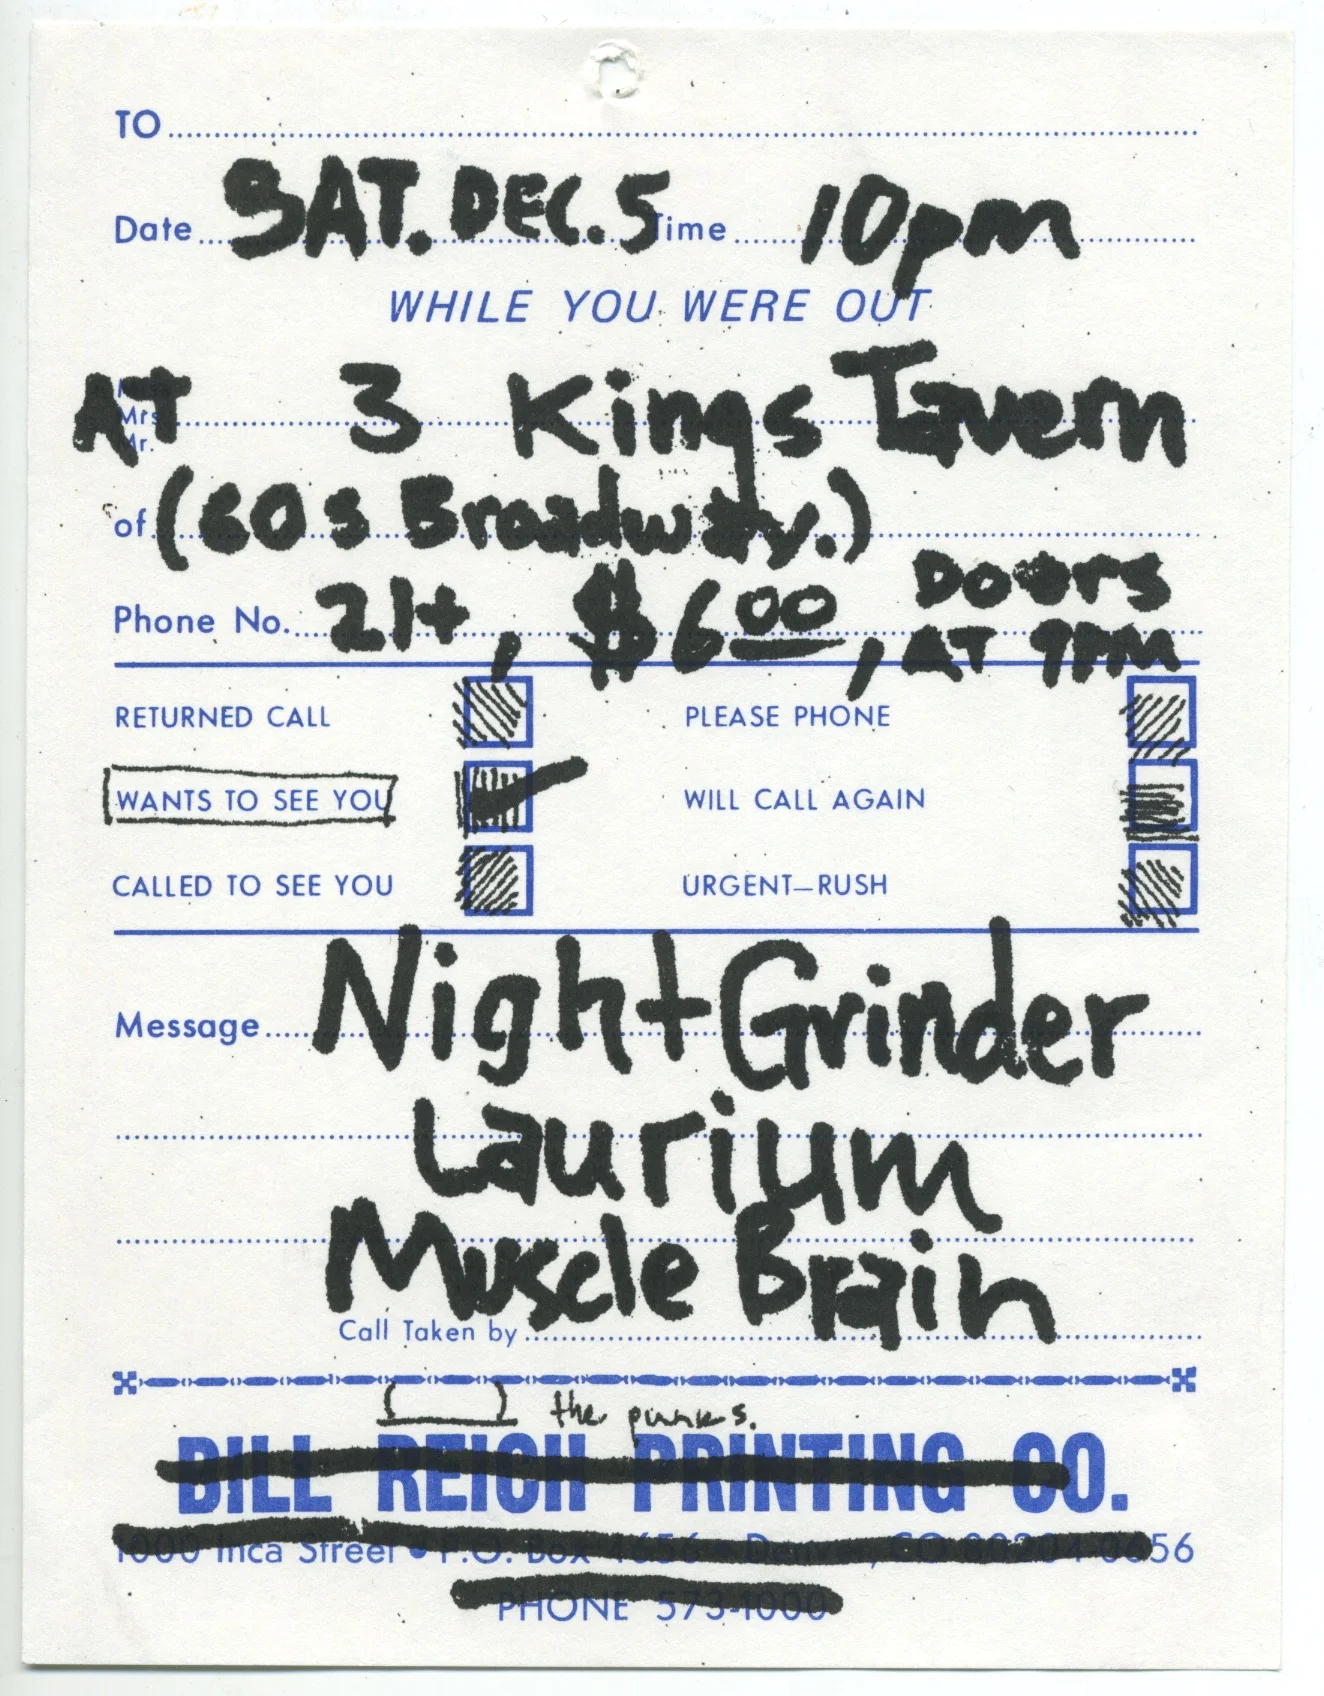 TO
Date SAT. DEC. 5 Time 10pm
WHILE YOU WERE OUT
AT 3 Kings Tavern
Mrs
Mr.
of (60 S Broadway.)
Phone No. 21+, $6.00, DOORS
AT 9PM
RETURNED CALL PLEASE PHONE
WANTS TO SEE YOU WILL CALL AGAIN
CALLED TO SEE YOU URGENT—RUSH
Message Night Grinder
Laurium
Muscle Brain
Call Taken by
the punks.
BILL REICH PRINTING CO.
1000 Inca Street • P.O. Box 4656 • Denver, CO 80204-0656
PHONE 573-1000